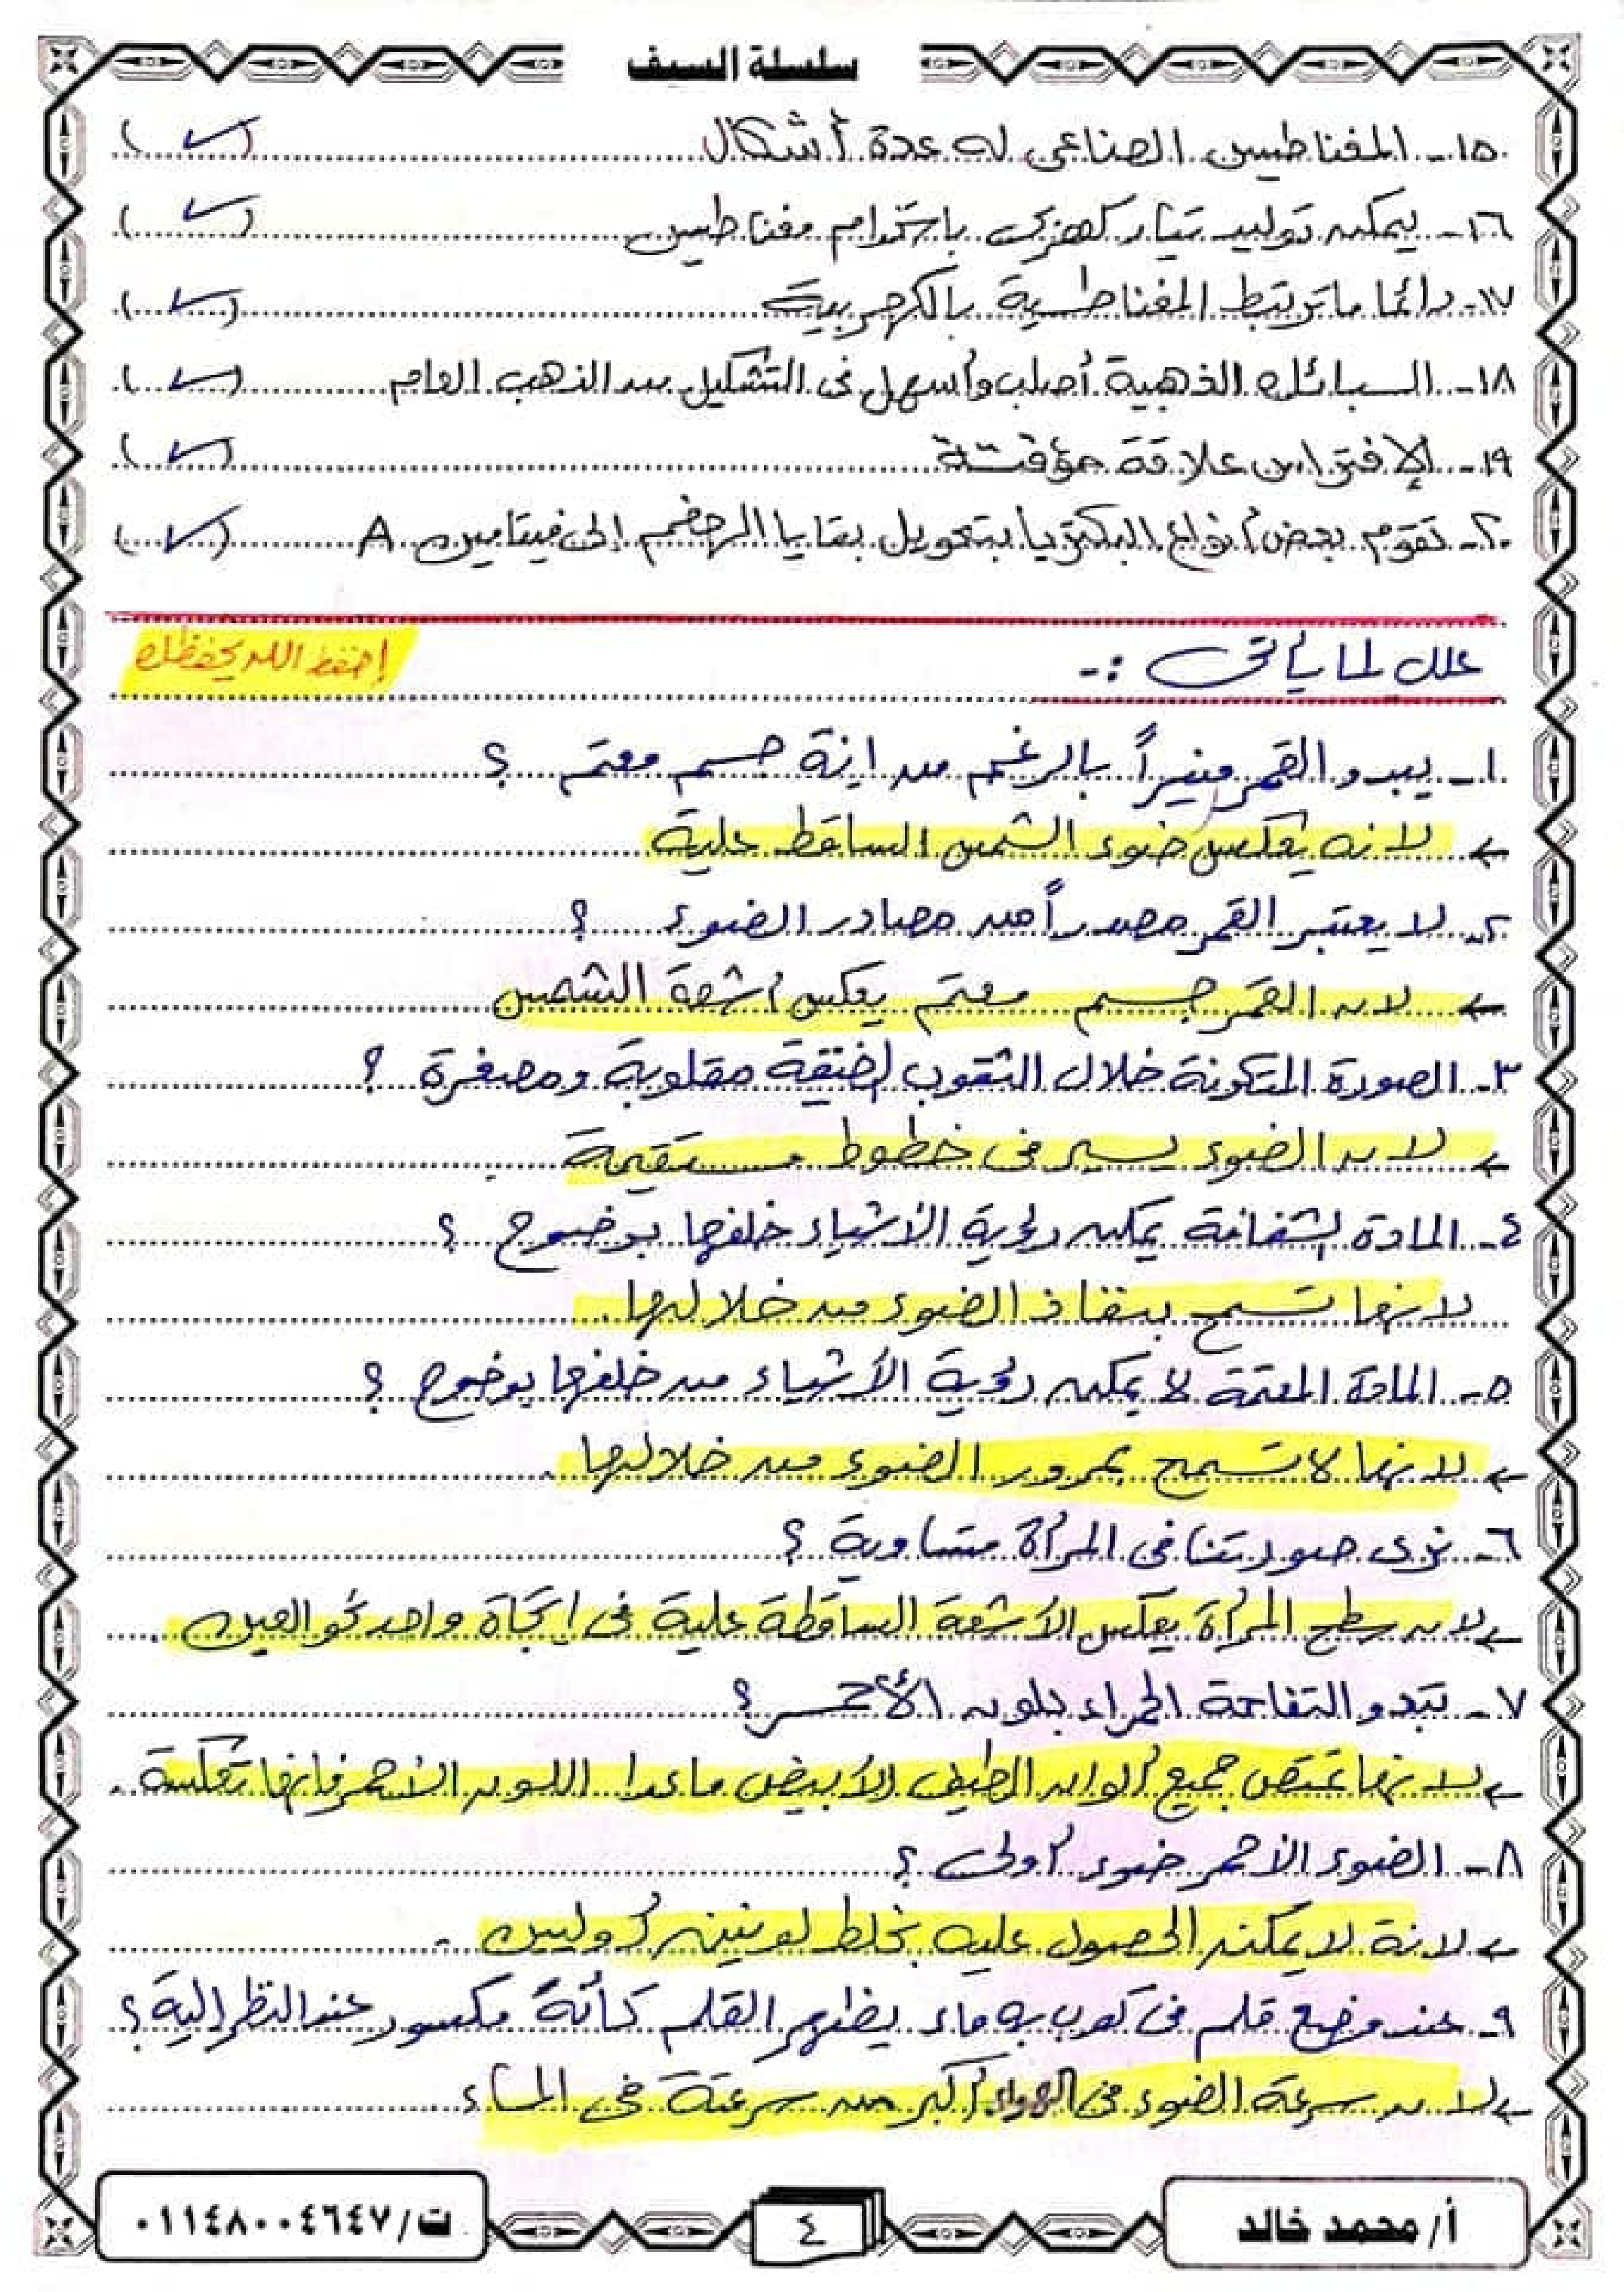 سلسلة السيف
١٥- المغناطيس الصناعى له عدة أشكال (✓)
١٦- يمكن توليد تيار كهربى باستخدام مغناطيس (✓)
١٧- دائما ما ترتبط المغناطسية بالكهربية (✓)
١٨- السبائك الذهبية أصلب وأسهل فى التشكيل من الذهب الخام (✓)
١٩- الإفتراس علاقة مؤقتة (✓)
٢٠- تقوم بعض أنواع البكتريا بتحويل بقايا الهضم إلى فيتامين A (✓)
علل لما يأتى :-
إحفظ الله يحفظك
١- يبدو القمر منيراً بالرغم من انة جسم معتم ؟
← لانه يعكس ضوء الشمس الساقط علية
٢- لا يعتبر القمر مصدراً من مصادر الضوء ؟
← لان القمر جسم معتم يعكس أشعة الشمس
٣- الصورة المتكونة خلال الثقوب الضيقة مقلوبة ومصغرة ؟
← لان الضوء يسير فى خطوط مستقيمة
٤- المادة الشفافة يمكن رؤية الأشياء خلفها بوضوح ؟
لانها تسمح بنفاذ الضوء من خلالها.
٥- المادة المعتمة لا يمكن رؤية الأشياء من خلفها بوضوح ؟
← لانها لا تسمح بمرور الضوء من خلالها.
٦- نرى صورتنا فى المرآة متساوية ؟
← لان سطح المرآة يعكس الأشعة الساقطة علية فى اتجاة واحد نحو العين.
٧- تبدو التفاحة الحمراء بلون الأحمر؟
← لانها تمتص جميع ألوان الطيف الأبيض ماعدا اللون الأحمر فانها تعكسة.
٨- الضوء الأحمر ضوء أولى ؟
← لانة لا يمكن الحصول عليه بخلط لونين أوليين.
٩- عند وضع قلم فى كوب به ماء يظهر القلم كأنة مكسور عند النظر الية ؟
← لان سرعة الضوء فى الهواء أكبر من سرعتة فى الماء
أ/ محمد خالد
٤
ت/ ٠١١٤٨٠٠٤٦٤٧